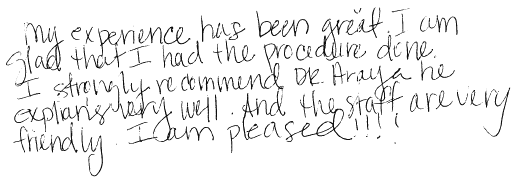 My experience has been great. I am
glad that I had the procedure done.
I strongly recommend DR. Araya he
explains very well. And the staff are very
friendly. I am pleased!!!!